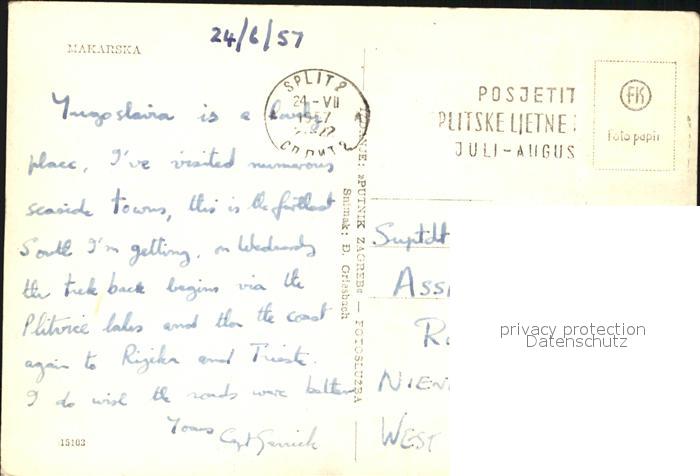 24/6/57
MAKARSKA
Yugoslavia is a lovely
place, I've visited numerous
seaside towns, this is the farthest
South I'm getting, on Wednesday
the trek back begins via the
Plitvice lakes and then the coast
again to Rijika and Trieste.
I do wish the roads were better
Yours
15103
SPLIT 2
24-VII
1957
СПЛИТ 2
IZDANJE: »PUTNIK ZAGREB« — FOTOSLUŽBA
Snimak: Đ. Griesbach
POSJETIT
PLITSKE LJETNE
JULI-AUGUS
FK
Foto papir
Suptdt
ASS
R
NIEN
WEST
privacy protection
Datenschutz